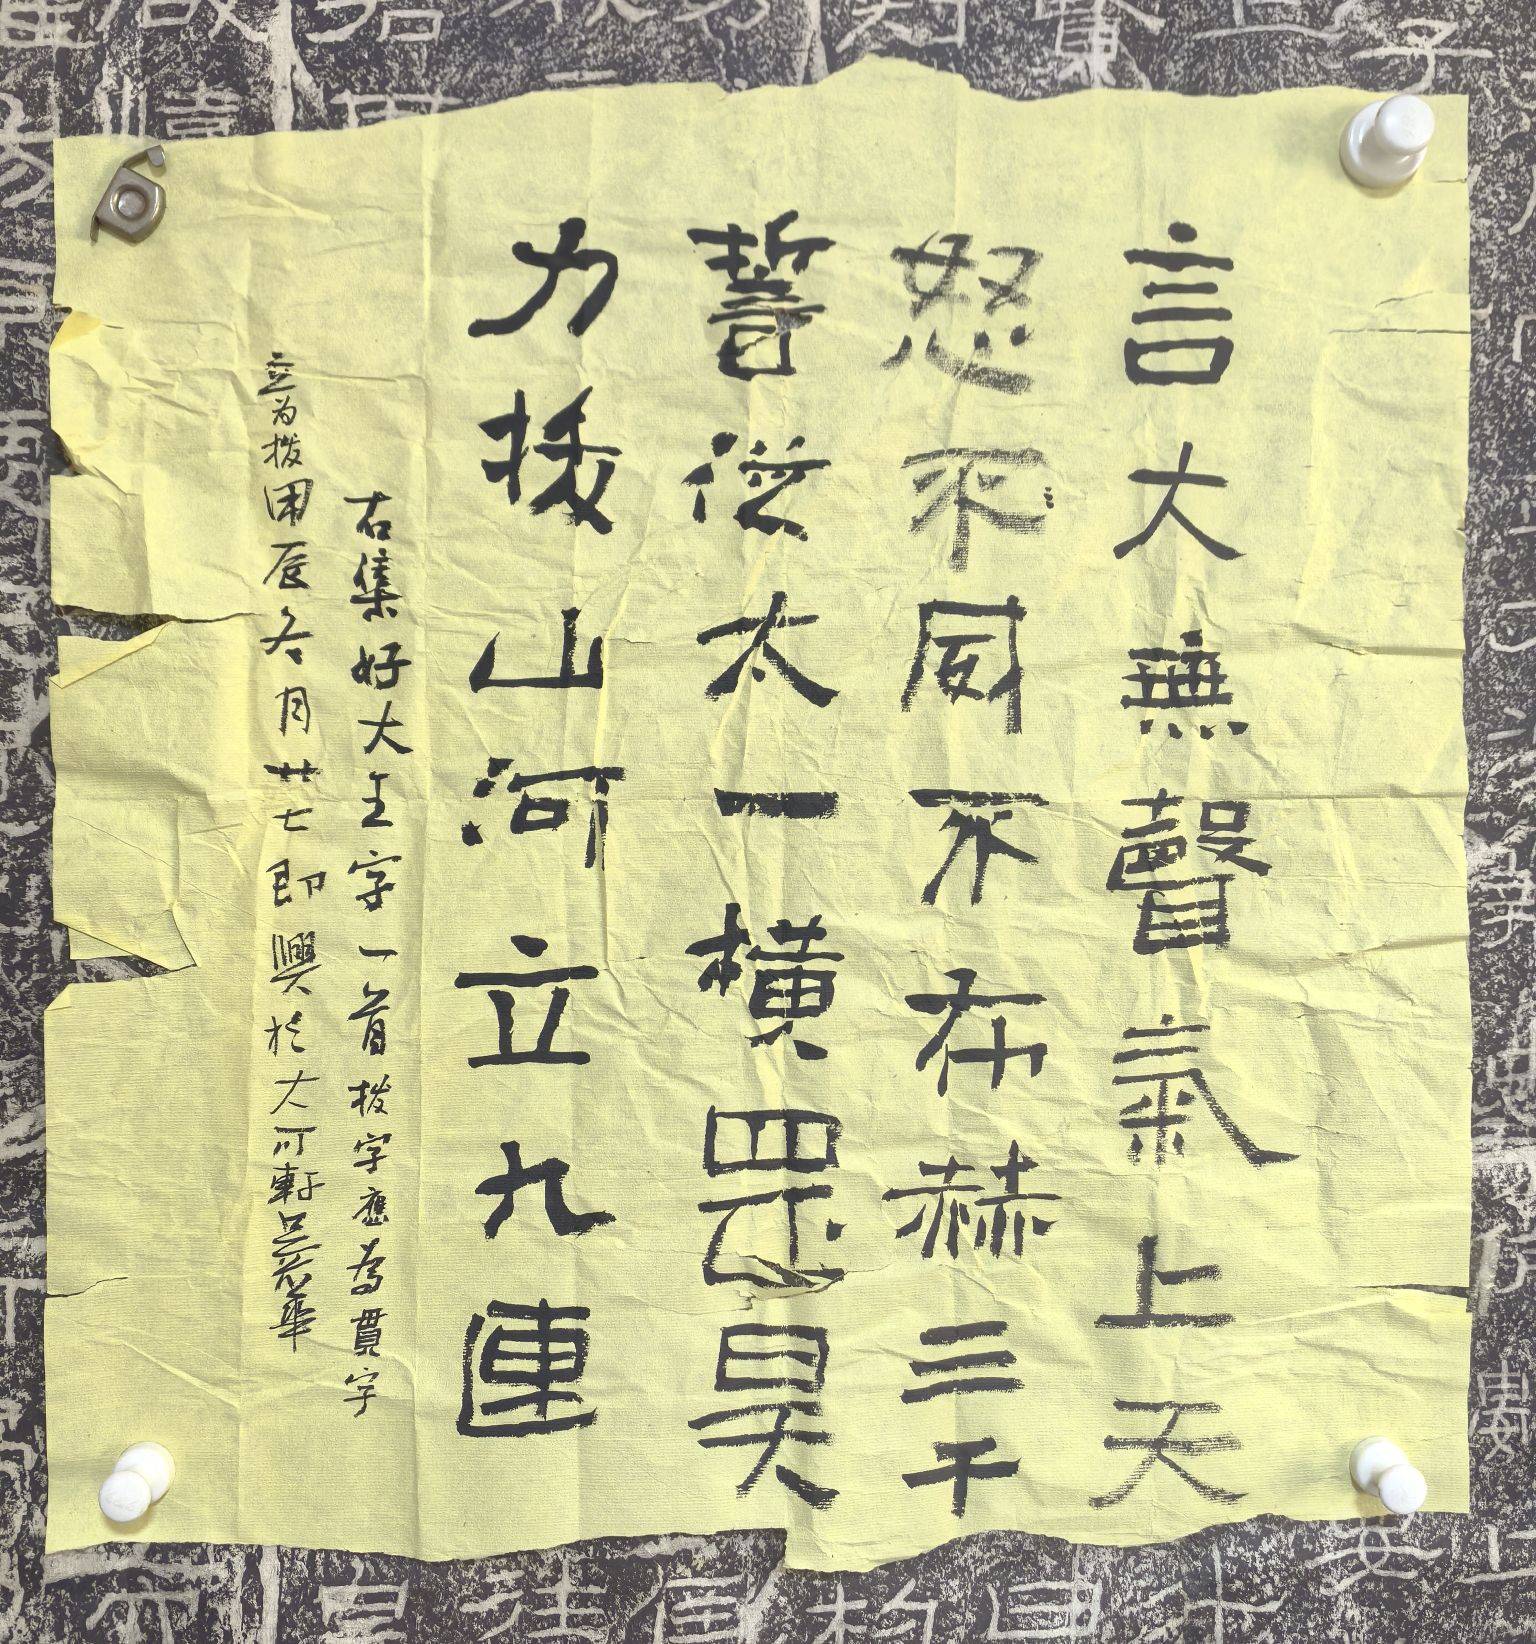 言大無聲氣上天
怒不威不布赫三千
誓從太一橫罡昊
力拔山河立九連
右集好大王字一首拔字應為貫字
立为拨甲辰冬月廿七即興於大可軒華